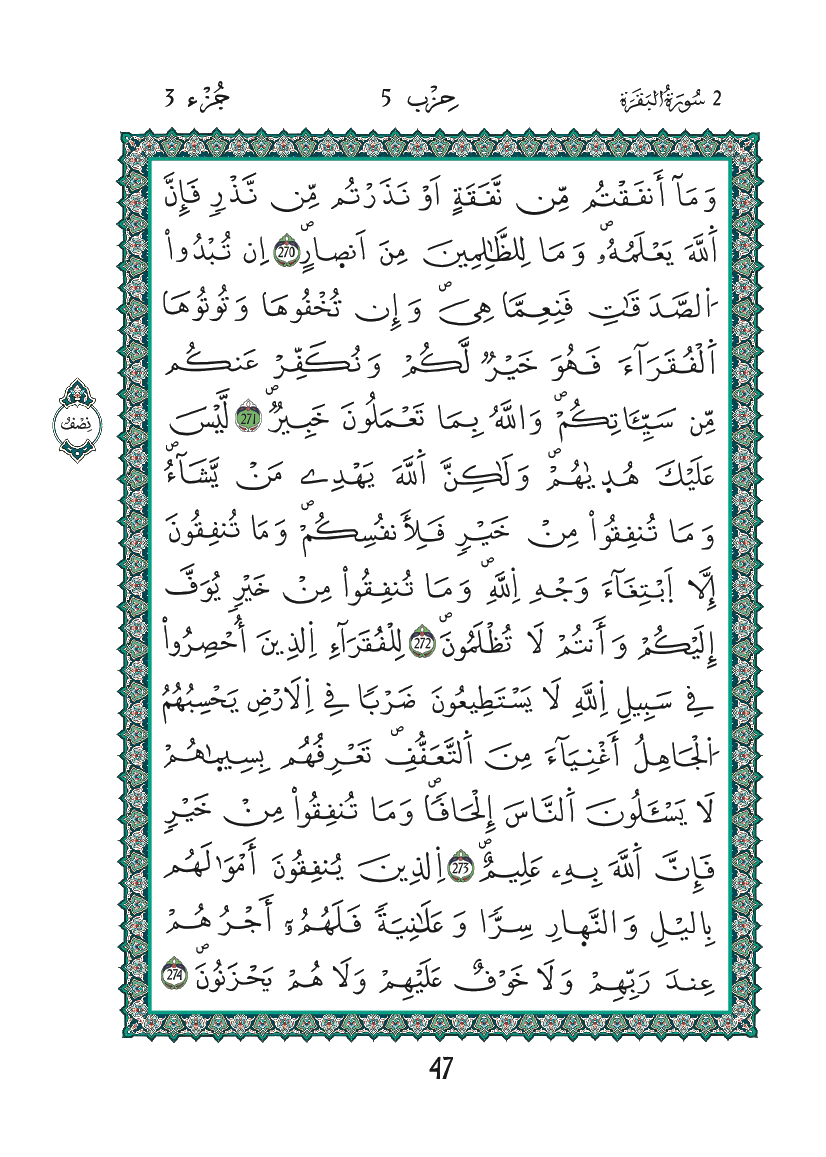 2 سُورَةُ الْبَقَرَةِ حِزْب 5 جُزْء 3
وَمَآ أَنفَقْتُم مِّن نَّفَقَةٍ اَوْ نَذَرْتُم مِّن نَّذْرٖ فَإِنَّ
اَ۬للَّهَ يَعْلَمُهُۥۖ وَمَا لِلظَّٰلِمِينَ مِنَ اَنص۪ارٍۖ 270 اِن تُبْدُواْ
اُ۬لصَّدَقَٰتِ فَنِعِمَّا هِيَۖ وَإِن تُخْفُوهَا وَتُوتُوهَا
اَ۬لْفُقَرَآءَ فَهُوَ خَيْرٞ لَّكُمْ وَنُكَفِّرْ عَنكُم
مِّن سَيِّـَٔاتِكُمْۖ وَاللَّهُ بِمَا تَعْمَلُونَ خَبِيرٞۖ 271 لَّيْسَ
نِصْفُ
عَلَيْكَ هُد۪يٰهُمْۖ وَلَٰكِنَّ اَ۬للَّهَ يَهْدِے مَنْ يَّشَآءُۖ
وَمَا تُنفِقُواْ مِنْ خَيْرٖ فَلِأَنفُسِكُمْۖ وَمَا تُنفِقُونَ
إِلَّا اَ۪بْتِغَآءَ وَجْهِ اِ۬للَّهِۖ وَمَا تُنفِقُواْ مِنْ خَيْرٖ يُوَفَّ
إِلَيْكُمْ وَأَنتُمْ لَا تُظْلَمُونَۖ 272 لِلْفُقَرَآءِ اِ۬لذِينَ أُحْصِرُواْ
فِے سَبِيلِ اِ۬للَّهِ لَا يَسْتَطِيعُونَ ضَرْبٗا فِے اِ۬لَارْضِ يَحْسِبُهُمُ
اُ۬لْجَاهِلُ أَغْنِيَآءَ مِنَ اَ۬لتَّعَفُّفِۖ تَعْرِفُهُم بِسِيم۪اهُمْ
لَا يَسْـَٔلُونَ اَ۬لنَّاسَ إِلْحَافٗاۖ وَمَا تُنفِقُواْ مِنْ خَيْرٖ
فَإِنَّ اَ۬للَّهَ بِهِۦ عَلِيمٌۖ 273 اِ۬لذِينَ يُنفِقُونَ أَمْوَٰلَهُم
بِاليْلِ وَالنَّه۪ارِ سِرّٗا وَعَلَٰنِيَةٗ فَلَهُمُۥٓ أَجْرُهُمْ
عِندَ رَبِّهِمْ وَلَا خَوْفٌ عَلَيْهِمْ وَلَا هُمْ يَحْزَنُونَۖ 274
47